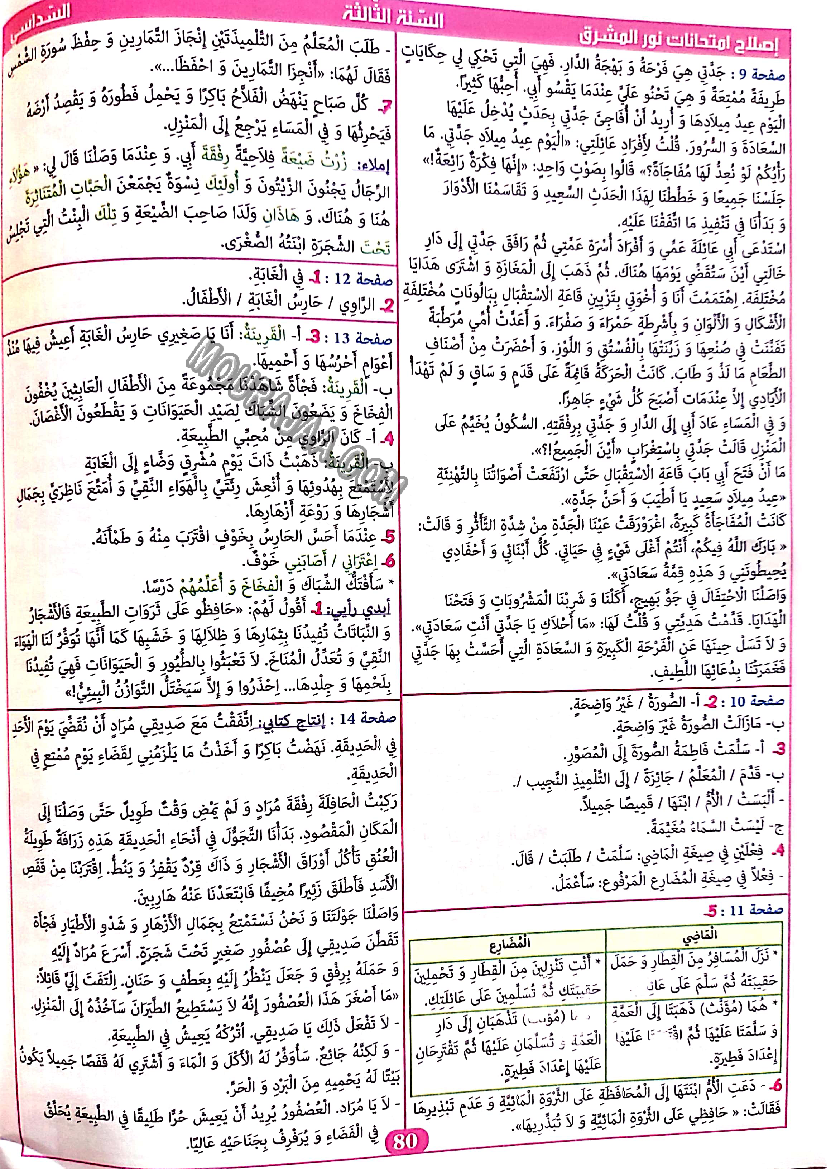 إصلاح امتحانات نور المشرق
السّنة الثّالثة
السّداسي
صفحة 9 : جَدَّتِي هِيَ فَرْحَةُ وَ بَهْجَةُ الدَّارِ. فَهِيَ الَّتِي تَحْكِي لِي حِكَايَاتٍ
طَرِيفَةً مُمْتِعَةً وَ هِيَ تَحْنُو عَلَيَّ عِنْدَمَا يَقْسُو أَبِي. أُحِبُّهَا كَثِيرًا.
اليَوْمَ عِيدُ مِيلاَدِهَا وَ أُرِيدُ أَنْ أُفَاجِئَ جَدَّتِي بِحَدَثٍ يُدْخِلُ عَلَيْهَا
السَّعَادَةَ وَ السُّرُورَ. قُلْتُ لِأَفْرَادِ عَائِلَتِي: «اليَوْمَ عِيدُ مِيلاَدِ جَدَّتِي. مَا
رَأْيُكُمْ لَوْ نُعِدُّ لَهَا مُفَاجَأَةً؟» قَالُوا بِصَوْتٍ وَاحِدٍ: «إِنَّهَا فِكْرَةٌ رَائِعَةٌ!»
جَلَسْنَا جَمِيعًا وَ خَطَّطْنَا لِهَذَا الْحَدَثِ السَّعِيدِ وَ تَقَاسَمْنَا الأَدْوَارَ
وَ بَدَأْنَا فِي تَنْفِيذِ مَا اتَّفَقْنَا عَلَيْهِ.
اسْتَدْعَى أَبِي عَائِلَةَ عَمِّي وَ أَفْرَادَ أُسْرَةِ عَمَّتِي ثُمَّ رَافَقَ جَدَّتِي إِلَى دَارِ
خَالَتِي أَيْنَ سَتُقَضِّي يَوْمَهَا هُنَاكَ. ثُمَّ ذَهَبَ إِلَى الْمَغَازَةِ وَ اشْتَرَى هَدَايَا
مُخْتَلِفَةً. اِهْتَمَمْتُ أَنَا وَ أُخْوَتِي بِتَزْيِينِ قَاعَةِ الاسْتِقْبَالِ بِبَالُونَاتٍ مُخْتَلِفَةِ
الأَشْكَالِ وَ الأَلْوَانِ وَ بِأَشْرِطَةٍ حَمْرَاءَ وَ صَفْرَاءَ. وَ أَعَدَّتْ أُمِّي مُرَطَّبَةً
تَفَنَّنَتْ فِي صُنْعِهَا وَ زَيَّنَتْهَا بِالْفُسْتُقِ وَ اللَّوْزِ. وَ أَحْضَرَتْ مِنْ أَصْنَافِ
الطَّعَامِ مَا لَذَّ وَ طَابَ. كَانَتْ الْحَرَكَةُ قَائِمَةً عَلَى قَدَمٍ وَ سَاقٍ وَ لَمْ تَهْدَأْ
الأَيَادِي إِلاَّ عِنْدَمَات أَصْبَحَ كُلُّ شَيْءٍ جَاهِزًا.
وَ فِي الْمَسَاءِ عَادَ أَبِي إِلَى الدَّارِ وَ جَدَّتِي بِرِفْقَتِهِ. السُّكُونُ يُخَيِّمُ عَلَى
الْمَنْزِلِ قَالَتْ جَدَّتِي بِاسْتِغْرَابٍ «أَيْنَ الْجَمِيعُ!؟».
مَا أَنْ فَتَحَ أَبِي بَابَ قَاعَةِ الاسْتِقْبَالِ حَتَّى ارْتَفَعَتْ أَصْوَاتُنَا بِالتَّهْنِئَةِ
«عِيدُ مِيلاَدٍ سَعِيدٍ يَا أَطْيَبَ وَ أَحَنَّ جَدَّةٍ».
كَانَتْ الْمُفَاجَأَةُ كَبِيرَةً، اغْرَوْرَقَتْ عَيْنَا الْجَدَّةِ مِنْ شِدَّةِ التَّأَثُّرِ وَ قَالَتْ:
« بَارَكَ اللَّهُ فِيكُمْ، أَنْتُمْ أَغْلَى شَيْءٍ فِي حَيَاتِي. كُلُّ أَبْنَائِي وَ أَحْفَادِي
يُحِيطُونَنِي وَ هَذِهِ قِمَّةُ سَعَادَتِي».
وَاصَلْنَا الاحْتِفَالَ فِي جَوٍّ بَهِيجٍ، أَكَلْنَا وَ شَرِبْنَا الْمَشْرُوبَاتِ وَ فَتَحْنَا
الْهَدَايَا. قَدَّمْتُ هَدِيَّتِي وَ قُلْتُ لَهَا: «مَا أَحْلاَكِ يَا جَدَّتِي أَنْتِ سَعَادَتِي».
وَ لاَ تَسَلْ حِينَهَا عَنِ الْفَرْحَةِ الْكَبِيرَةِ وَ السَّعَادَةِ الَّتِي أَحَسَّتْ بِهَا جَدَّتِي
فَغَمَرَتْنَا بِدُعَائِهَا اللَّطِيفِ.
صفحة 10 : 2- أ- الصُّورَةُ / غَيْرُ وَاضِحَةٍ.
ب- مَازَالَتْ الصُّورَةُ غَيْرَ وَاضِحَةٍ.
3- أ- سَلَّمَتْ فَاطِمَةُ الصُّورَةَ إِلَى الْمُصَوِّرِ.
ب- قَدَّمَ / الْمُعَلِّمُ / جَائِزَةً / إِلَى التِّلْمِيذِ النَّجِيبِ /.
- أَلْبَسَتْ / الأُمُّ / ابْنَهَا / قَمِيصًا جَمِيلاً.
ج- لَيْسَتْ السَّمَاءُ مُغَيِّمَةً.
4- فِعْلَيْنِ فِي صِيغَةِ الْمَاضِي: سَلَّمَتْ / طَلَبَتْ / قَالَ.
- فِعْلاً فِي صِيغَةِ الْمُضَارِعِ الْمَرْفُوعِ: سَأَعْمَلُ.
صفحة 11 : 5-
الْمَاضِي
الْمُضَارِع
* نَزَلَ الْمُسَافِرُ مِنَ الْقِطَارِ وَ حَمَلَ
حَقِيبَتَهُ ثُمَّ سَلَّمَ عَلَى
* أَنْتِ تَنْزِلِينَ مِنَ الْقِطَارِ وَ تَحْمِلِينَ
حَقِيبَتَكِ ثُمَّ تُسَلِّمِينَ عَلَى عَائِلَتِكِ.
* هُمَا (مُؤَنَّث) ذَهَبَتَا إِلَى الْعَمَّةِ
وَ سَلَّمَتَا عَلَيْهَا ثُمَّ عَلَيْهَا
إِعْدَادَ فَطِيرَةٍ.
(مُؤَنَّث) تَذْهَبَانِ إِلَى دَارِ
الْعَمَّةِ وَ تُسَلِّمَانِ عَلَيْهَا ثُمَّ تَقْتَرِحَانِ
عَلَيْهَا إِعْدَادَ فَطِيرَةٍ.
6- - دَعَتِ الأُمُّ ابْنَتَهَا إِلَى الْمُحَافَظَةِ عَلَى الثَّرْوَةِ الْمَائِيَّةِ وَ عَدَمِ تَبْذِيرِهَا
فَقَالَتْ: « حَافِظِي عَلَى الثَّرْوَةِ الْمَائِيَّةِ وَ لاَ تُبَذِّرِيهَا».
- طَلَبَ الْمُعَلِّمُ مِنَ التِّلْمِيذَتَيْنِ إِنْجَازَ التَّمَارِينِ وَ حِفْظَ سُورَةِ الشَّمْسِ
فَقَالَ لَهُمَا: «أَنْجِزَا التَّمَارِينَ وَ احْفَظَا...».
7- كُلَّ صَبَاحٍ يَنْهَضُ الْفَلاَّحُ بَاكِرًا وَ يَحْمِلُ فَطُورَهُ وَ يَقْصِدُ أَرْضَهُ
فَيَحْرُثُهَا وَ فِي الْمَسَاءِ يَرْجِعُ إِلَى الْمَنْزِلِ.
إملاء: زُرْتُ ضَيْعَةً فِلاَحِيَّةً رِفْقَةَ أَبِي. وَ عِنْدَمَا وَصَلْنَا قَالَ لِي: « هَؤُلاَءِ
الرِّجَالُ يَجْنُونَ الزَّيْتُونَ وَ أُولَئِكَ نِسْوَةٌ يَجْمَعْنَ الْحَبَّاتِ الْمُتَنَاثِرَةَ
هُنَا وَ هُنَاكَ. وَ هَاذَانِ وَلَدَا صَاحِبِ الضَّيْعَةِ وَ تِلْكَ الْبِنْتُ الَّتِي تَجْلِسُ
تَحْتَ الشَّجَرَةِ ابْنَتُهُ الصُّغْرَى.
صفحة 12 : 1- فِي الْغَابَةِ.
2- الرَّاوِي / حَارِسُ الْغَابَةِ / الأَطْفَالُ.
صفحة 13 : 3- أ- الْقَرِينَةُ: أَنَا يَا صَغِيرِي حَارِسُ الْغَابَةِ أَعِيشُ فِيهَا مُنْذُ
أَعْوَامٍ أَحْرُسُهَا وَ أَحْمِيهَا.
ب- الْقَرِينَةُ: فَجْأَةً شَاهَدْنَا مَجْمُوعَةً مِنَ الأَطْفَالِ الْعَابِثِينَ يُخْفُونَ
الْفِخَاخَ وَ يَضَعُونَ الشِّبَاكَ لِصَيْدِ الْحَيَوَانَاتِ وَ يَقْطَعُونَ الأَغْصَانَ.
4- أ- كَانَ الرَّاوِي مِنْ مُحِبِّي الطَّبِيعَةِ.
ب- الْقَرِينَةُ: ذَهَبْتُ ذَاتَ يَوْمٍ مُشْرِقٍ وَضَّاءٍ إِلَى الْغَابَةِ
لِأَسْتَمْتِعَ بِهُدُوئِهَا وَ أُنْعِشَ رِئَتَيَّ بِالْهَوَاءِ النَّقِيِّ وَ أُمَتِّعَ نَاظِرَيَّ بِجَمَالِ
أَشْجَارِهَا وَ رَوْعَةِ أَزْهَارِهَا.
5- عِنْدَمَا أَحَسَّ الْحَارِسُ بِخَوْفٍ اقْتَرَبَ مِنْهُ وَ طَمْأَنَهُ.
6- اِعْتَرَانِي / أَصَابَنِي خَوْفٌ.
* سَأَفْتَكُّ الشِّبَاكَ وَ الْفِخَاخَ وَ أُعَلِّمُهُمْ دَرْسًا.
أبدي رأيي: 1- أَقُولُ لَهُمْ: «حَافِظُو عَلَى ثَرَوَاتِ الطَّبِيعَةِ فَالأَشْجَارُ
وَ النَّبَاتَاتُ تُفِيدُنَا بِثِمَارِهَا وَ ظِلاَلِهَا وَ خَشَبِهَا كَمَا أَنَّهَا تُوَفِّرُ لَنَا الْهَوَاءَ
النَّقِيَّ وَ تُعَدِّلُ الْمُنَاخَ. لاَ تَعْبَثُوا بِالطُّيُورِ وَ الْحَيَوَانَاتِ فَهِيَ تُفِيدُنَا
بِلَحْمِهَا وَ جِلْدِهَا... اِحْذَرُوا وَ إِلاَّ سَيَخْتَلُّ التَّوَازُنُ الْبِيئِيُّ!»
صفحة 14 : إنتاج كتابي: اِتَّفَقْتُ مَعَ صَدِيقِي مُرَادٍ أَنْ نُقَضِّيَ يَوْمَ الأَحَدِ
فِي الْحَدِيقَةِ. نَهَضْتُ بَاكِرًا وَ أَخَذْتُ مَا يَلْزَمُنِي لِقَضَاءِ يَوْمٍ مُمْتِعٍ فِي
الْحَدِيقَةِ.
رَكِبْتُ الْحَافِلَةَ رِفْقَةَ مُرَادٍ وَ لَمْ يَمْضِ وَقْتٌ طَوِيلٌ حَتَّى وَصَلْنَا إِلَى
الْمَكَانِ الْمَقْصُودِ. بَدَأْنَا التَّجَوُّلَ فِي أَنْحَاءِ الْحَدِيقَةِ هَذِهِ زَرَافَةٌ طَوِيلَةُ
الْعُنُقِ تَأْكُلُ أَوْرَاقَ الأَشْجَارِ وَ ذَاكَ قِرْدٌ يَقْفِزُ وَ يَنُطُّ. اِقْتَرَبْنَا مِنْ قَفَصِ
الأَسَدِ فَأَطْلَقَ زَئِيرًا مُخِيفًا فَابْتَعَدْنَا عَنْهُ هَارِبِينَ.
وَاصَلْنَا جَوْلَتَنَا وَ نَحْنُ نَسْتَمْتِعُ بِجَمَالِ الأَزْهَارِ وَ شَدْوِ الأَطْيَارِ فَجْأَةً
تَفَطَّنَ صَدِيقِي إِلَى عُصْفُورٍ صَغِيرٍ تَحْتَ شَجَرَةٍ. أَسْرَعَ مُرَادٌ إِلَيْهِ
وَ حَمَلَهُ بِرِفْقٍ وَ جَعَلَ يَنْظُرُ إِلَيْهِ بِعَطْفٍ وَ حَنَانٍ. اِلْتَفَتَ إِلَيَّ قَائِلاً:
«مَا أَصْغَرَ هَذَا الْعُصْفُورَ إِنَّهُ لاَ يَسْتَطِيعُ الطَّيَرَانَ سَآخُذُهُ إِلَى الْمَنْزِلِ.
- لاَ تَفْعَلْ ذَلِكَ يَا صَدِيقِي. اُتْرُكْهُ يَعِيشُ فِي الطَّبِيعَةِ.
- وَ لَكِنَّهُ جَائِعٌ. سَأُوَفِّرُ لَهُ الأَكْلَ وَ الْمَاءَ وَ أَشْتَرِي لَهُ قَفَصًا جَمِيلاً يَكُونُ
بَيْتًا لَهُ يَحْمِيهِ مِنَ الْبَرْدِ وَ الْحَرِّ.
- لاَ يَا مُرَاد. الْعُصْفُورُ يُرِيدُ أَنْ يَعِيشَ حُرًّا طَلِيقًا فِي الطَّبِيعَةِ يُحَلِّقُ
فِي الْفَضَاءِ وَ يُرَفْرِفُ بِجَنَاحَيْهِ عَالِيًا.
80
MOURAJAA.COM